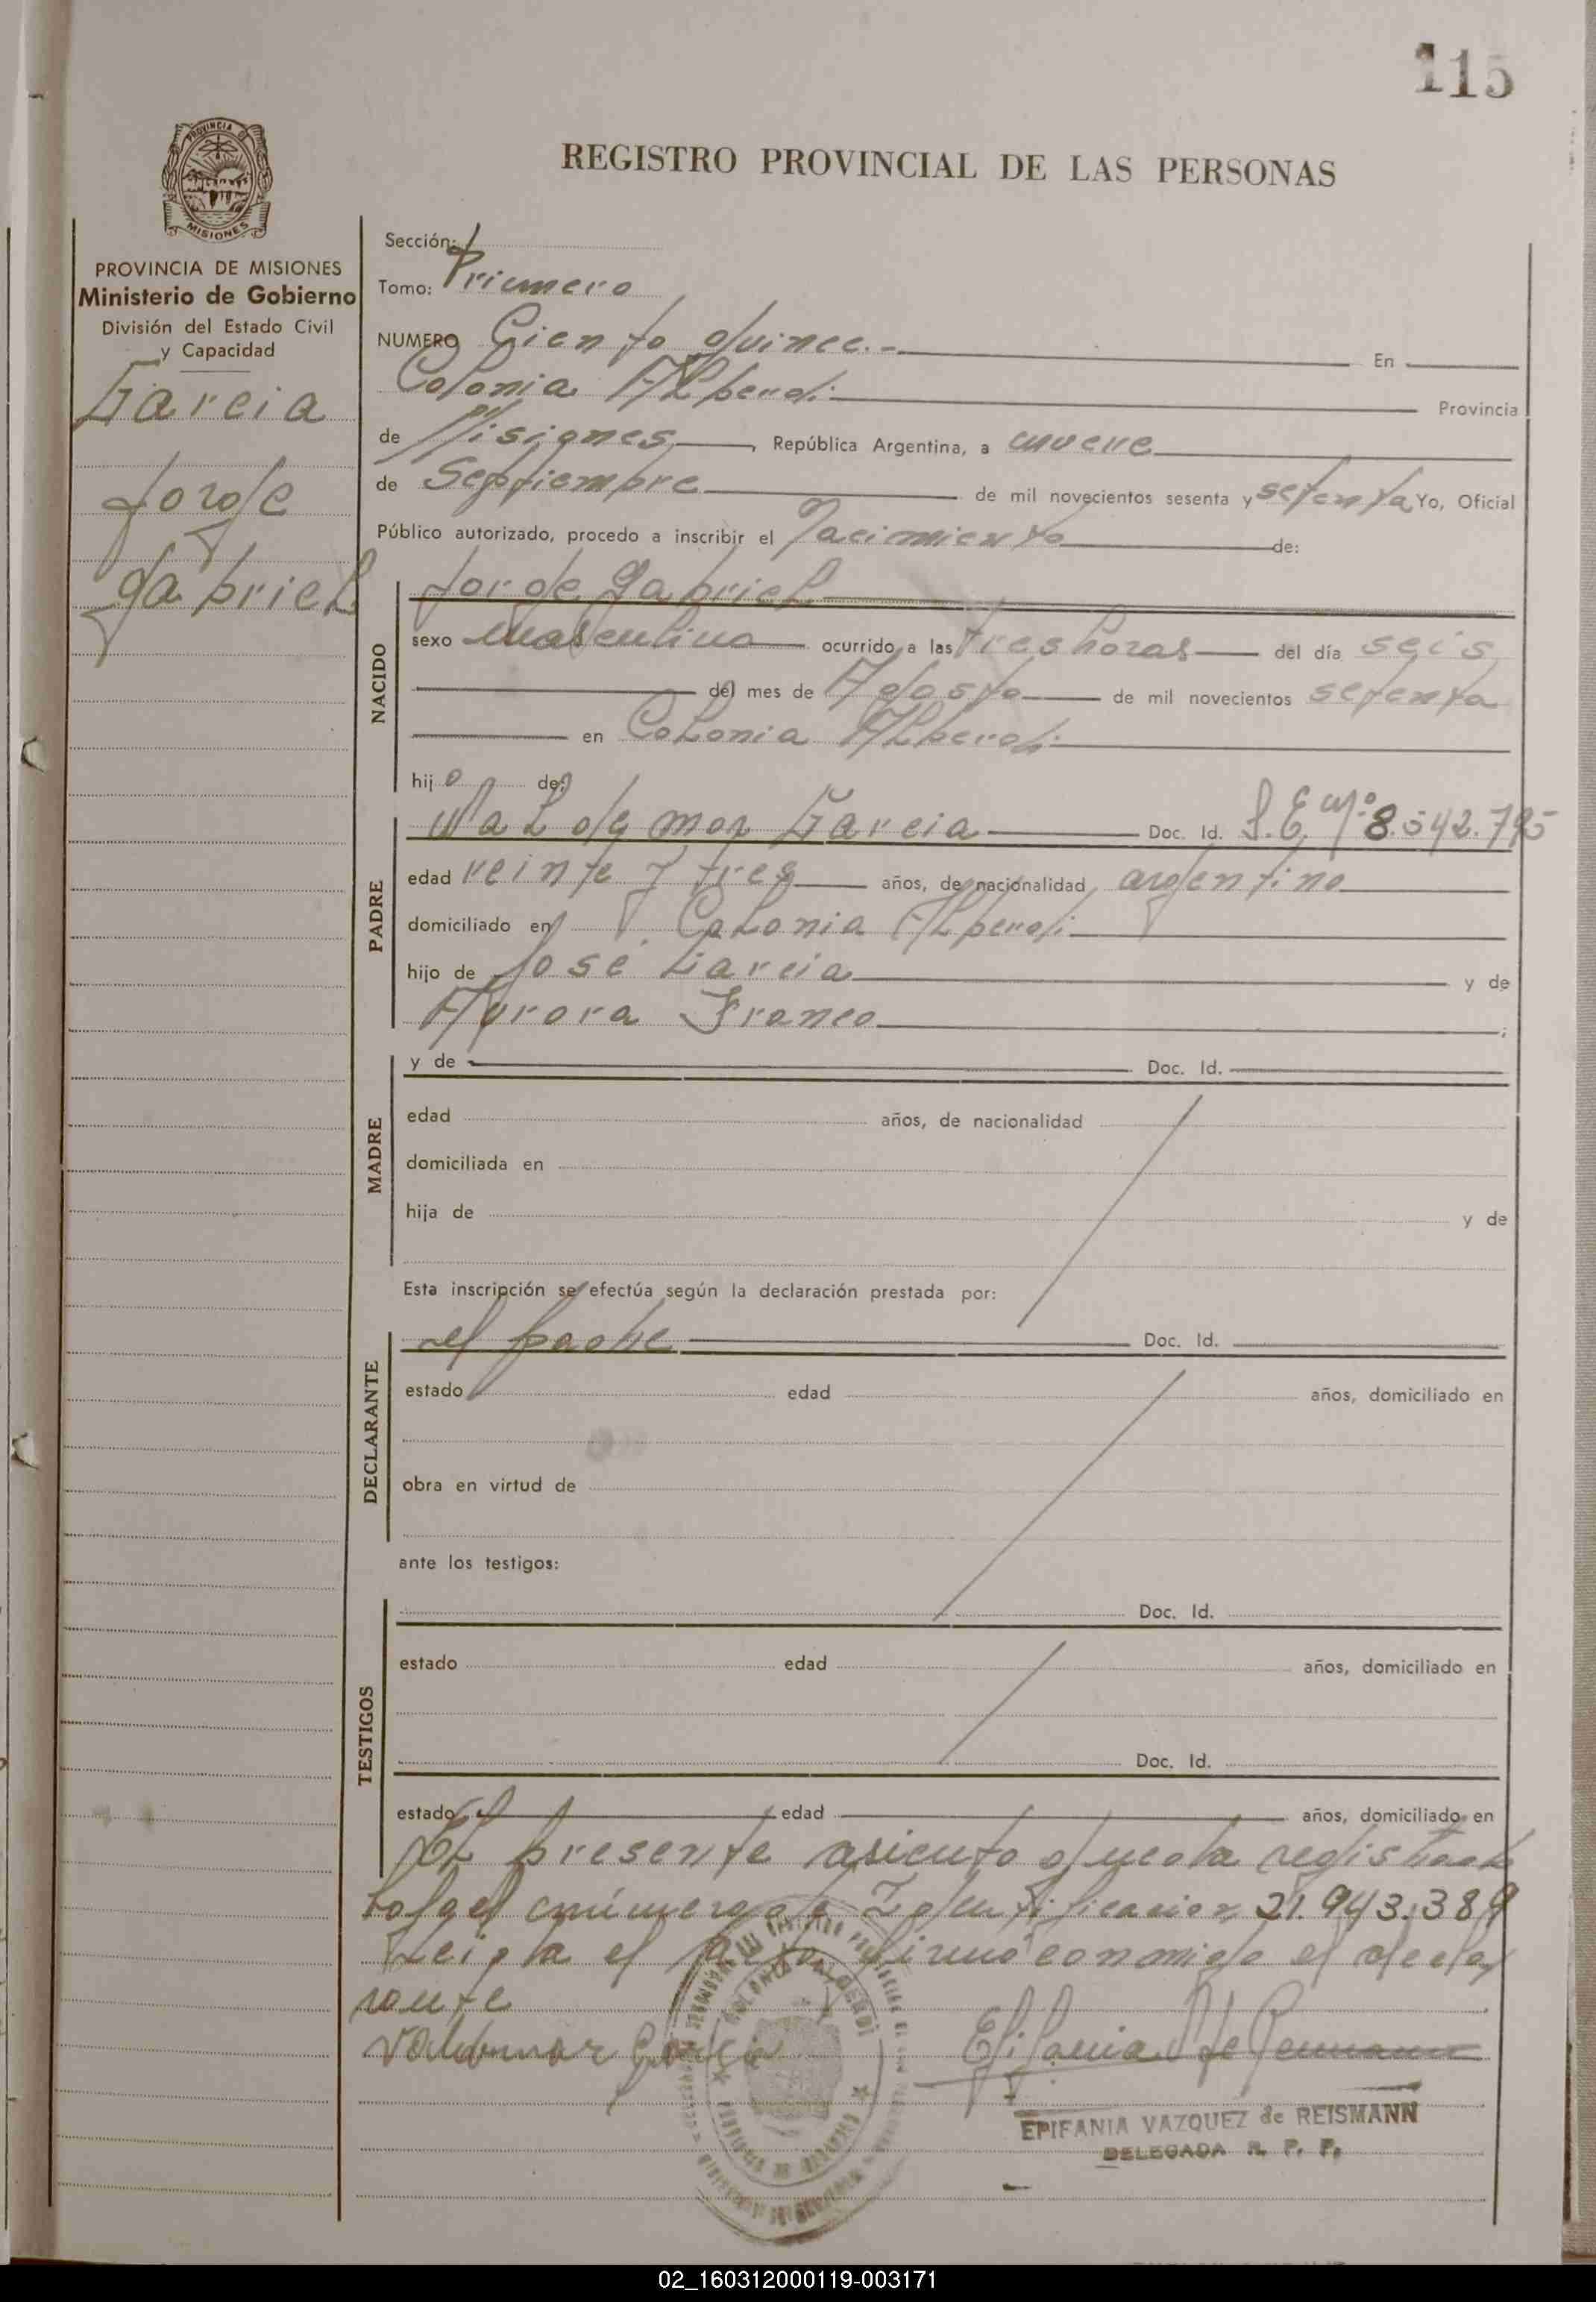 115
REGISTRO PROVINCIAL DE LAS PERSONAS
PROVINCIA DE MISIONES
Ministerio de Gobierno
División del Estado Civil
y Capacidad
Garcia
Jorge
Gabriel
Sección:
Tomo: Primero
NUMERO Ciento quince.- En
Colonia Alberdi Provincia
de Misiones, República Argentina, a nueve
de Septiembre de mil novecientos sesenta y setenta Yo, Oficial
Público autorizado, procedo a inscribir el Nacimiento de:
NACIDO
Jorge Gabriel
sexo masculino ocurrido a las tres horas del día seis
del mes de Agosto de mil novecientos setenta
en Colonia Alberdi
hijo de:
PADRE
Valdemar Garcia Doc. Id. L.E. Nº 8.542.795
edad veinte y tres años, de nacionalidad argentino
domiciliado en Colonia Alberdi
hijo de José Garcia y de
Aurora Franco ;
MADRE
y de Doc. Id.
edad años, de nacionalidad
domiciliada en
hija de y de
Esta inscripción se efectúa según la declaración prestada por:
DECLARANTE
el padre Doc. Id.
estado edad años, domiciliado en
obra en virtud de
ante los testigos:
TESTIGOS
Doc. Id.
estado edad años, domiciliado en
Doc. Id.
estado edad años, domiciliado en
El presente asiento queda registrado
bajo el número de Identificacion 21.943.389
Leida el acta firmó conmigo el decla
rante
Valdemar Garcia
EPIFANIA VAZQUEZ de REISMANN
DELEGADA R. P. P.
02_160312000119-003171